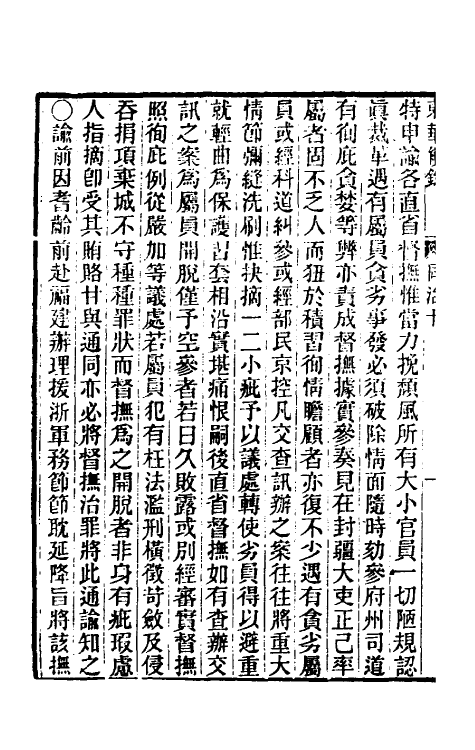 東華續錄 同治十 一
特申諭各直省督撫惟當力挽頹風所有大小官員一切陋規認
眞裁革遇有屬員貪劣事發必須破除情面隨時劾參府州司道
有徇庇貪婪等弊亦責成督撫據實參奏見在封疆大吏正己率
屬者固不乏人而狃於積習徇情瞻顧者亦復不少遇有貪劣屬
員或經科道糾參或經部民京控凡交查訊辦之案往往將重大
情節彌縫洗刷惟抉摘一二小疵予以議處轉使劣員得以避重
就輕曲爲保護習套相沿實堪痛恨嗣後直省督撫如有查辦交
訊之案爲屬員開脫僅予空參者若日久敗露或別經審實督撫
照徇庇例從嚴加等議處若屬員犯有枉法濫刑橫徵苛斂及侵
吞捐項棄城不守種種罪狀而督撫爲之開脫者非身有疵瑕處
人指摘卽受其賄賂甘與通同亦必將督撫治罪將此通諭知之
〇諭前因耆齡前赴福建辦理援浙軍務節節耽延降旨將該撫